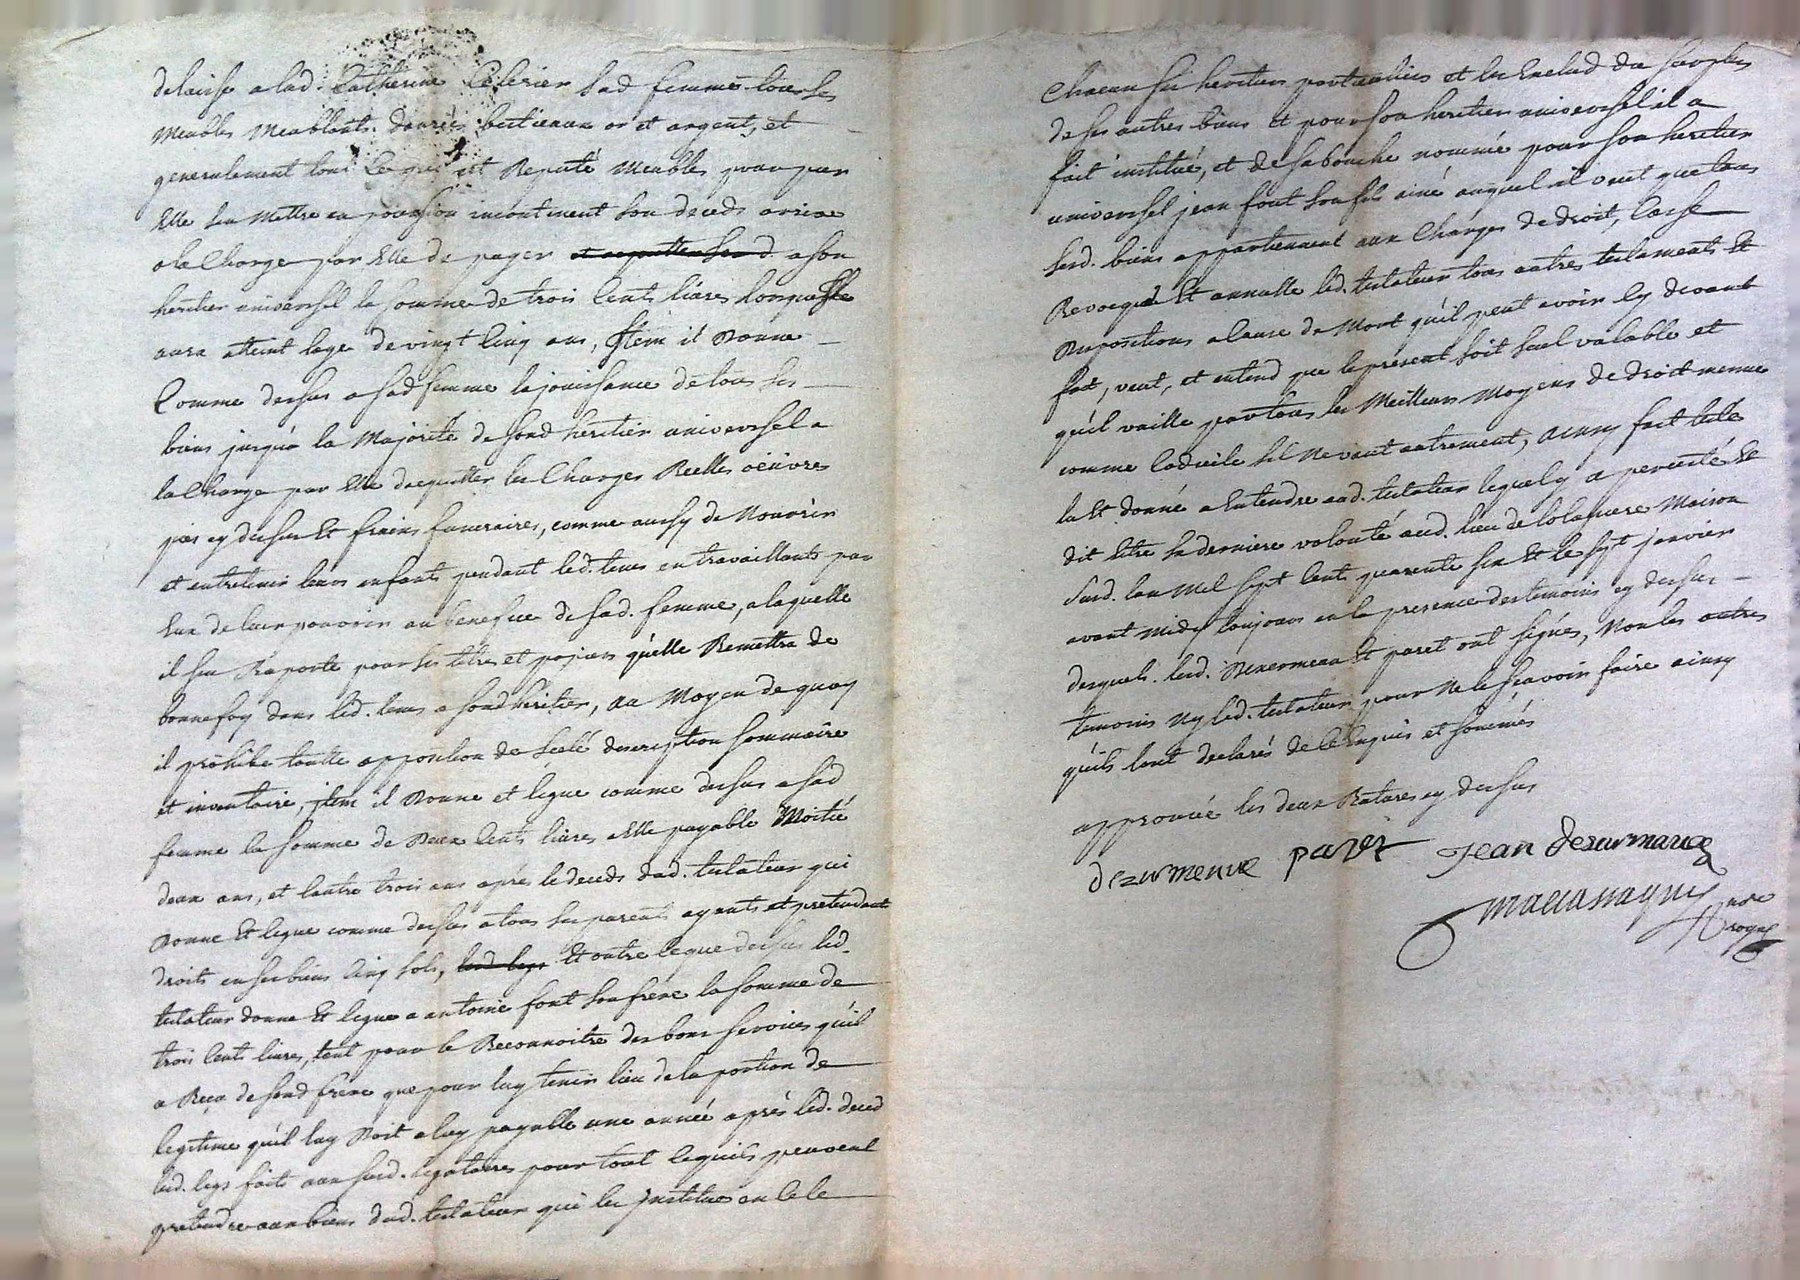 delaisse a lad. Catherine Celerier sad femme tous ses
meubles meublants. danrées bestieaux or et argent, et
generalement tout ce qui est Reputé meubles, pour par
Elle sen mettre en possession incontinent son deceds arrivé
a la Charge par Elle de payer a son
heritier universsel la somme de trois Cents livres lorsquelle
aura atteint lage de vingt cinq ans, Item il donne
Comme dessus a sad femme la jouissance de tous ses
biens jusqua la Majorité de sond heritier universsel a
la Charge par Elle dacquitter les Charges Reelles oeuvres
pies cy dessus Et fraies funeraires, comme aussy de Nourrir
et entretenir leurs enfants pendant led. tems en travaillants par
Eux de leur pouvoir au benefice de sad. femme, a laquelle
il sen Raporte pour ses titres et papiers quelle Remettra de
bonnefoy dans led. tems a sond heritier, au Moyen de quoy
il prohibe toutte apposition de scelé description sommaire
et inventaire, item il donne et legue comme dessus a sad
femme la somme de deux Cents livres a Elle payable Moitié
deux ans, et lautre trois ans aprés le deceds dud. testateur qui
donne Et legue comme dessus a tous ses parents ayants et pretendants
droits en ses biens cinq sols, led. legs Et outre ce que dessus led.
testateur donne Et legue a antoine font son frere la somme de
trois Cents livres, tent pour le Reconnoitre des bons services quil
a Reçu de sond frere que pour luy tenir lieu de la portion de
legitime quil luy doit a luy payable une année aprés led. deced
led. legs faits aux susd. legataires pour tout ce quils peuvent
pretendre aux biens dud. testateur qui les Institue en cela
Chacun ses heritiers particuliers et les Exclud du surplus
de ses autres biens Et pour son heritier universsel il a
fait institué, et de sa bouche nommé pour son heritier
universsel jean font son fils ainé auquel il veut que tous
sesd. biens appartiennent aux Charges de droit, Casse
Revocque Et annulle led. testateur tous autres testaments Et
dispositions a Cause de Mort quil peut avoir cy devant
fait, veut, et entend que le present soit seul valable et
quil vaille par tous les Meilleurs Moyens de droit mesme
comme Codicile sil ne vaut autrement, ainsy fait leu
lu Et donné a Entendre aud. testateur lequel y a percisté Et
dit Etre sa derniere volonté aud. lieu de Maison
susd. lan Mil Sept Cents quarente six Et le Sept janvier
avant midy toujours en la presence des temoins cy dessus
desquels. lesd. Dezermeau Et paret ont signés, Non les autres
temoins Ny led. testateur pour Ne le scavoir faire ainsy
quils lont declarés de ce Enquis et sommés
approuvé les deux Ratures cy dessus
dezurmenue paret Jean dezurmaux